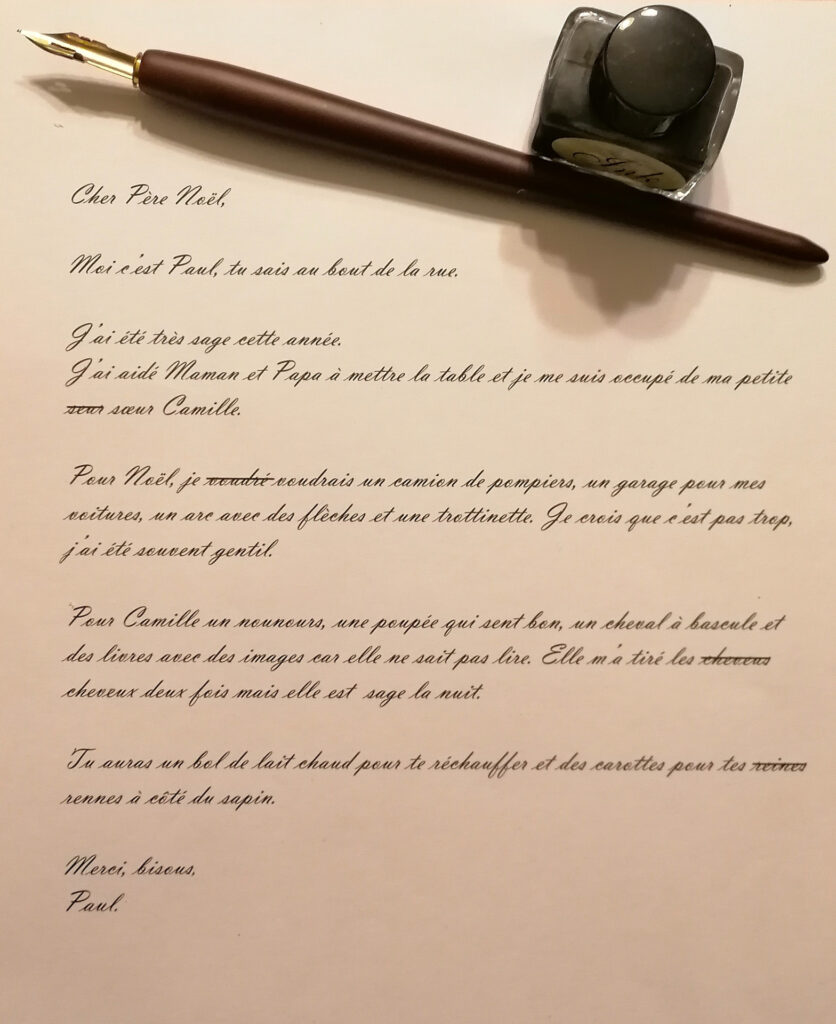 Ink
Cher Père Noël,
Moi c'est Paul, tu sais au bout de la rue.
J'ai été très sage cette année.
J'ai aidé Maman et Papa à mettre la table et je me suis occupé de ma petite
seur sœur Camille.
Pour Noël, je voudré voudrais un camion de pompiers, un garage pour mes
voitures, un arc avec des flèches et une trottinette. Je crois que c'est pas trop,
j'ai été souvent gentil.
Pour Camille un nounours, une poupée qui sent bon, un cheval à bascule et
des livres avec des images car elle ne sait pas lire. Elle m'a tiré les cheveus
cheveux deux fois mais elle est sage la nuit.
Tu auras un bol de lait chaud pour te réchauffer et des carottes pour tes reines
rennes à côté du sapin.
Merci, bisous,
Paul.